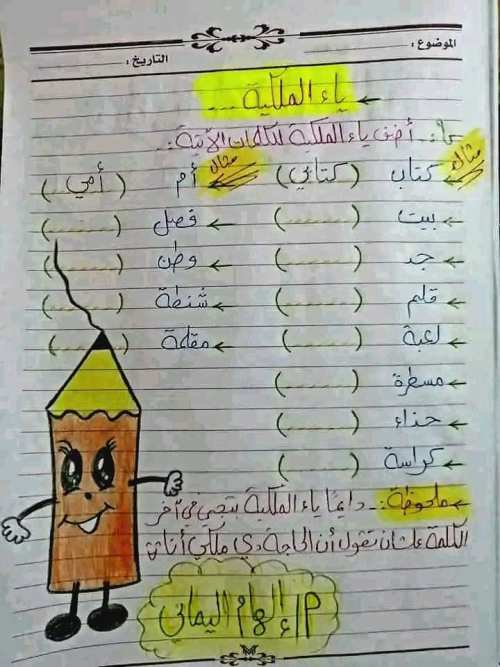 الموضوع :
التاريخ :
← ياء الملكية ....
س١: أضف ياء الملكية للكلمات الآتية :.
مثال ← كتاب ( كتابي ) مثال ← أم ( أمي )
← بيت ( ...... ) ← فصل ( ...... )
← جد ( ...... ) ← وطن ( ...... )
← قلم ( ...... ) ← شنطة ( ...... )
← لعبة ( ...... ) ← مقلمة ( ...... )
← مسطرة ( ...... )
← حذاء ( ...... )
← كراسة ( ...... )
← ملحوظة :. دايمًا ياء الملكية بتيجي في آخر
الكلمة علشان تقول أن الحاجة دي ملكي أنا
م/ إلهام اليماني